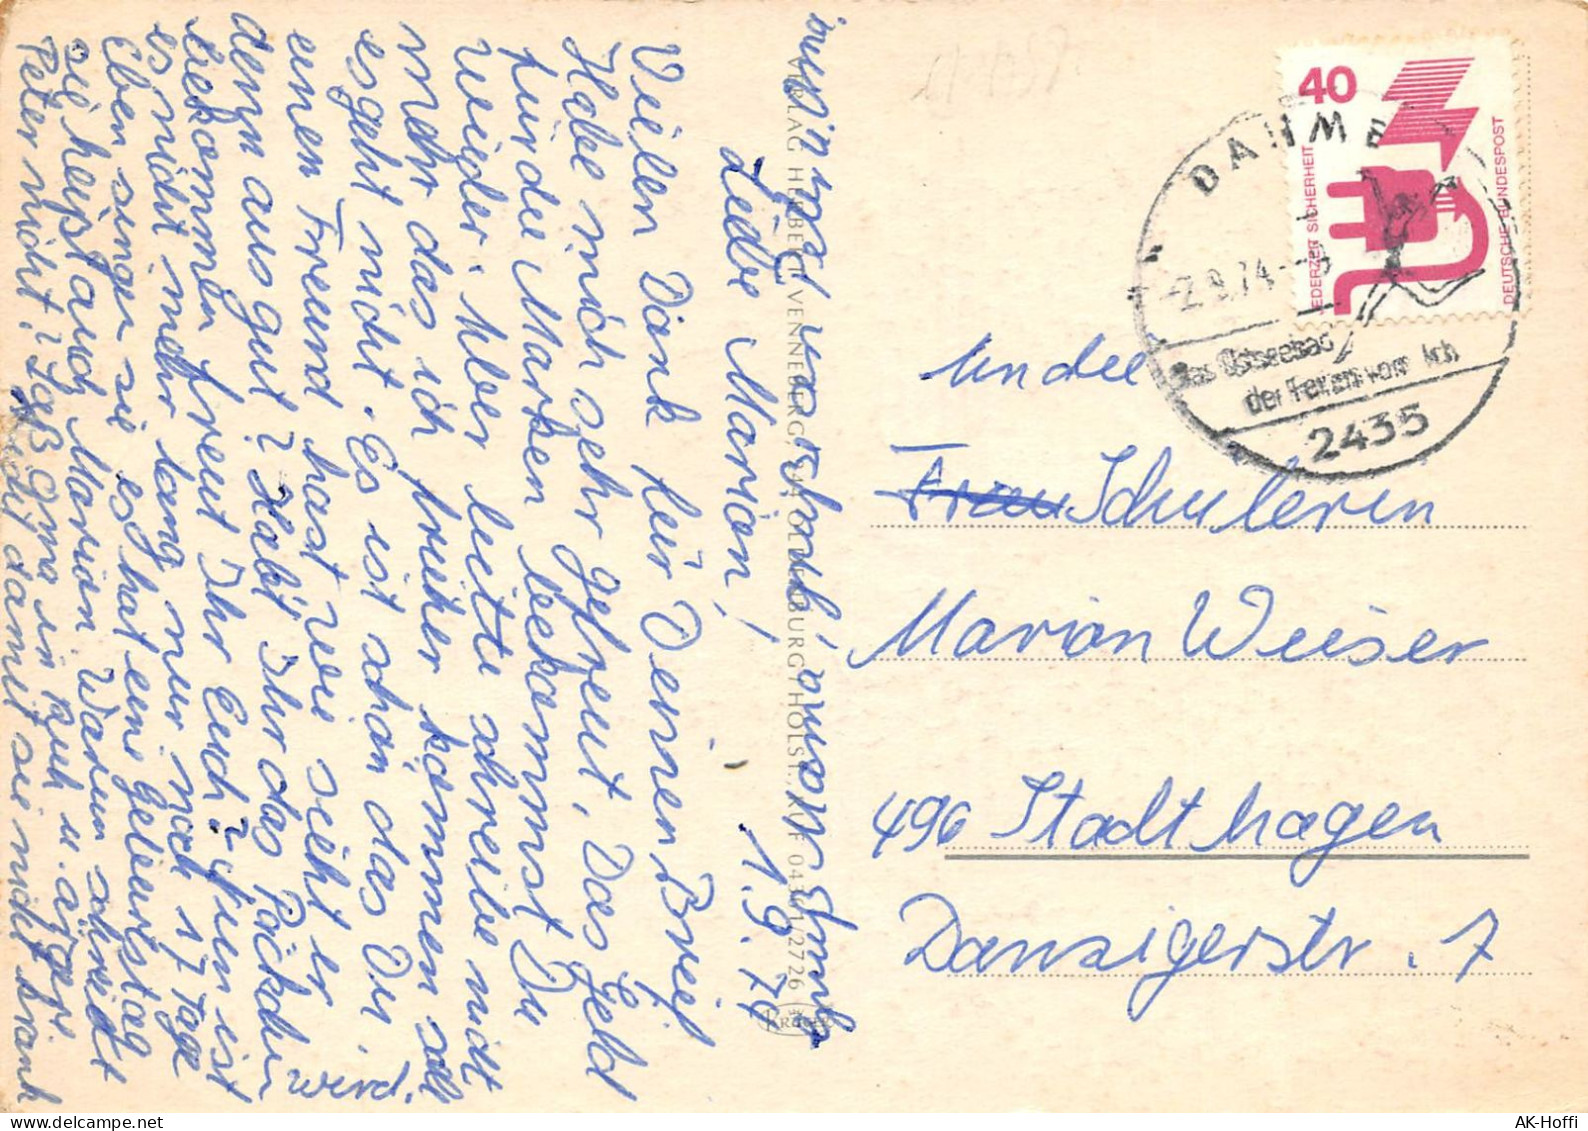 1.9.74
Liebe Marion!
Vielen Dank für Deinen Brief
Habe mich sehr gefreut, Das Geld
für die Marken bekommst Du
wieder. Aber bitte schreibe nicht
mehr das ich früher kommen soll
es geht nicht. Es ist schon das Du
einen Freund hast wie sieht er
denn aus gut? Habt Ihr das Päckchen
bekommen freut Ihr Euch? Nun ist wird.
es nicht mehr lang nur noch 17 Tage
Eben singen sie es hat ein Geburtstag
sie heißt auch Marion. Warum schreibt
Peter nicht? Laß Oma in Ruh u. ärger
nicht damit sie nicht krank
VERLAG HERBERT VENNEBERG, 244 OLDENBURG/HOLST. RUF 04361/2726
KRÜGER
40
JEDERZEIT SICHERHEIT
DEUTSCHE BUNDESPOST
DAHME
-2.9.74
das Ostseebad
der Ferien von Ich
2435
An die
Frau Schülerin
Marion Weiser
496 Stadthagen
Danzigerstr. 7
AK-Hoffi